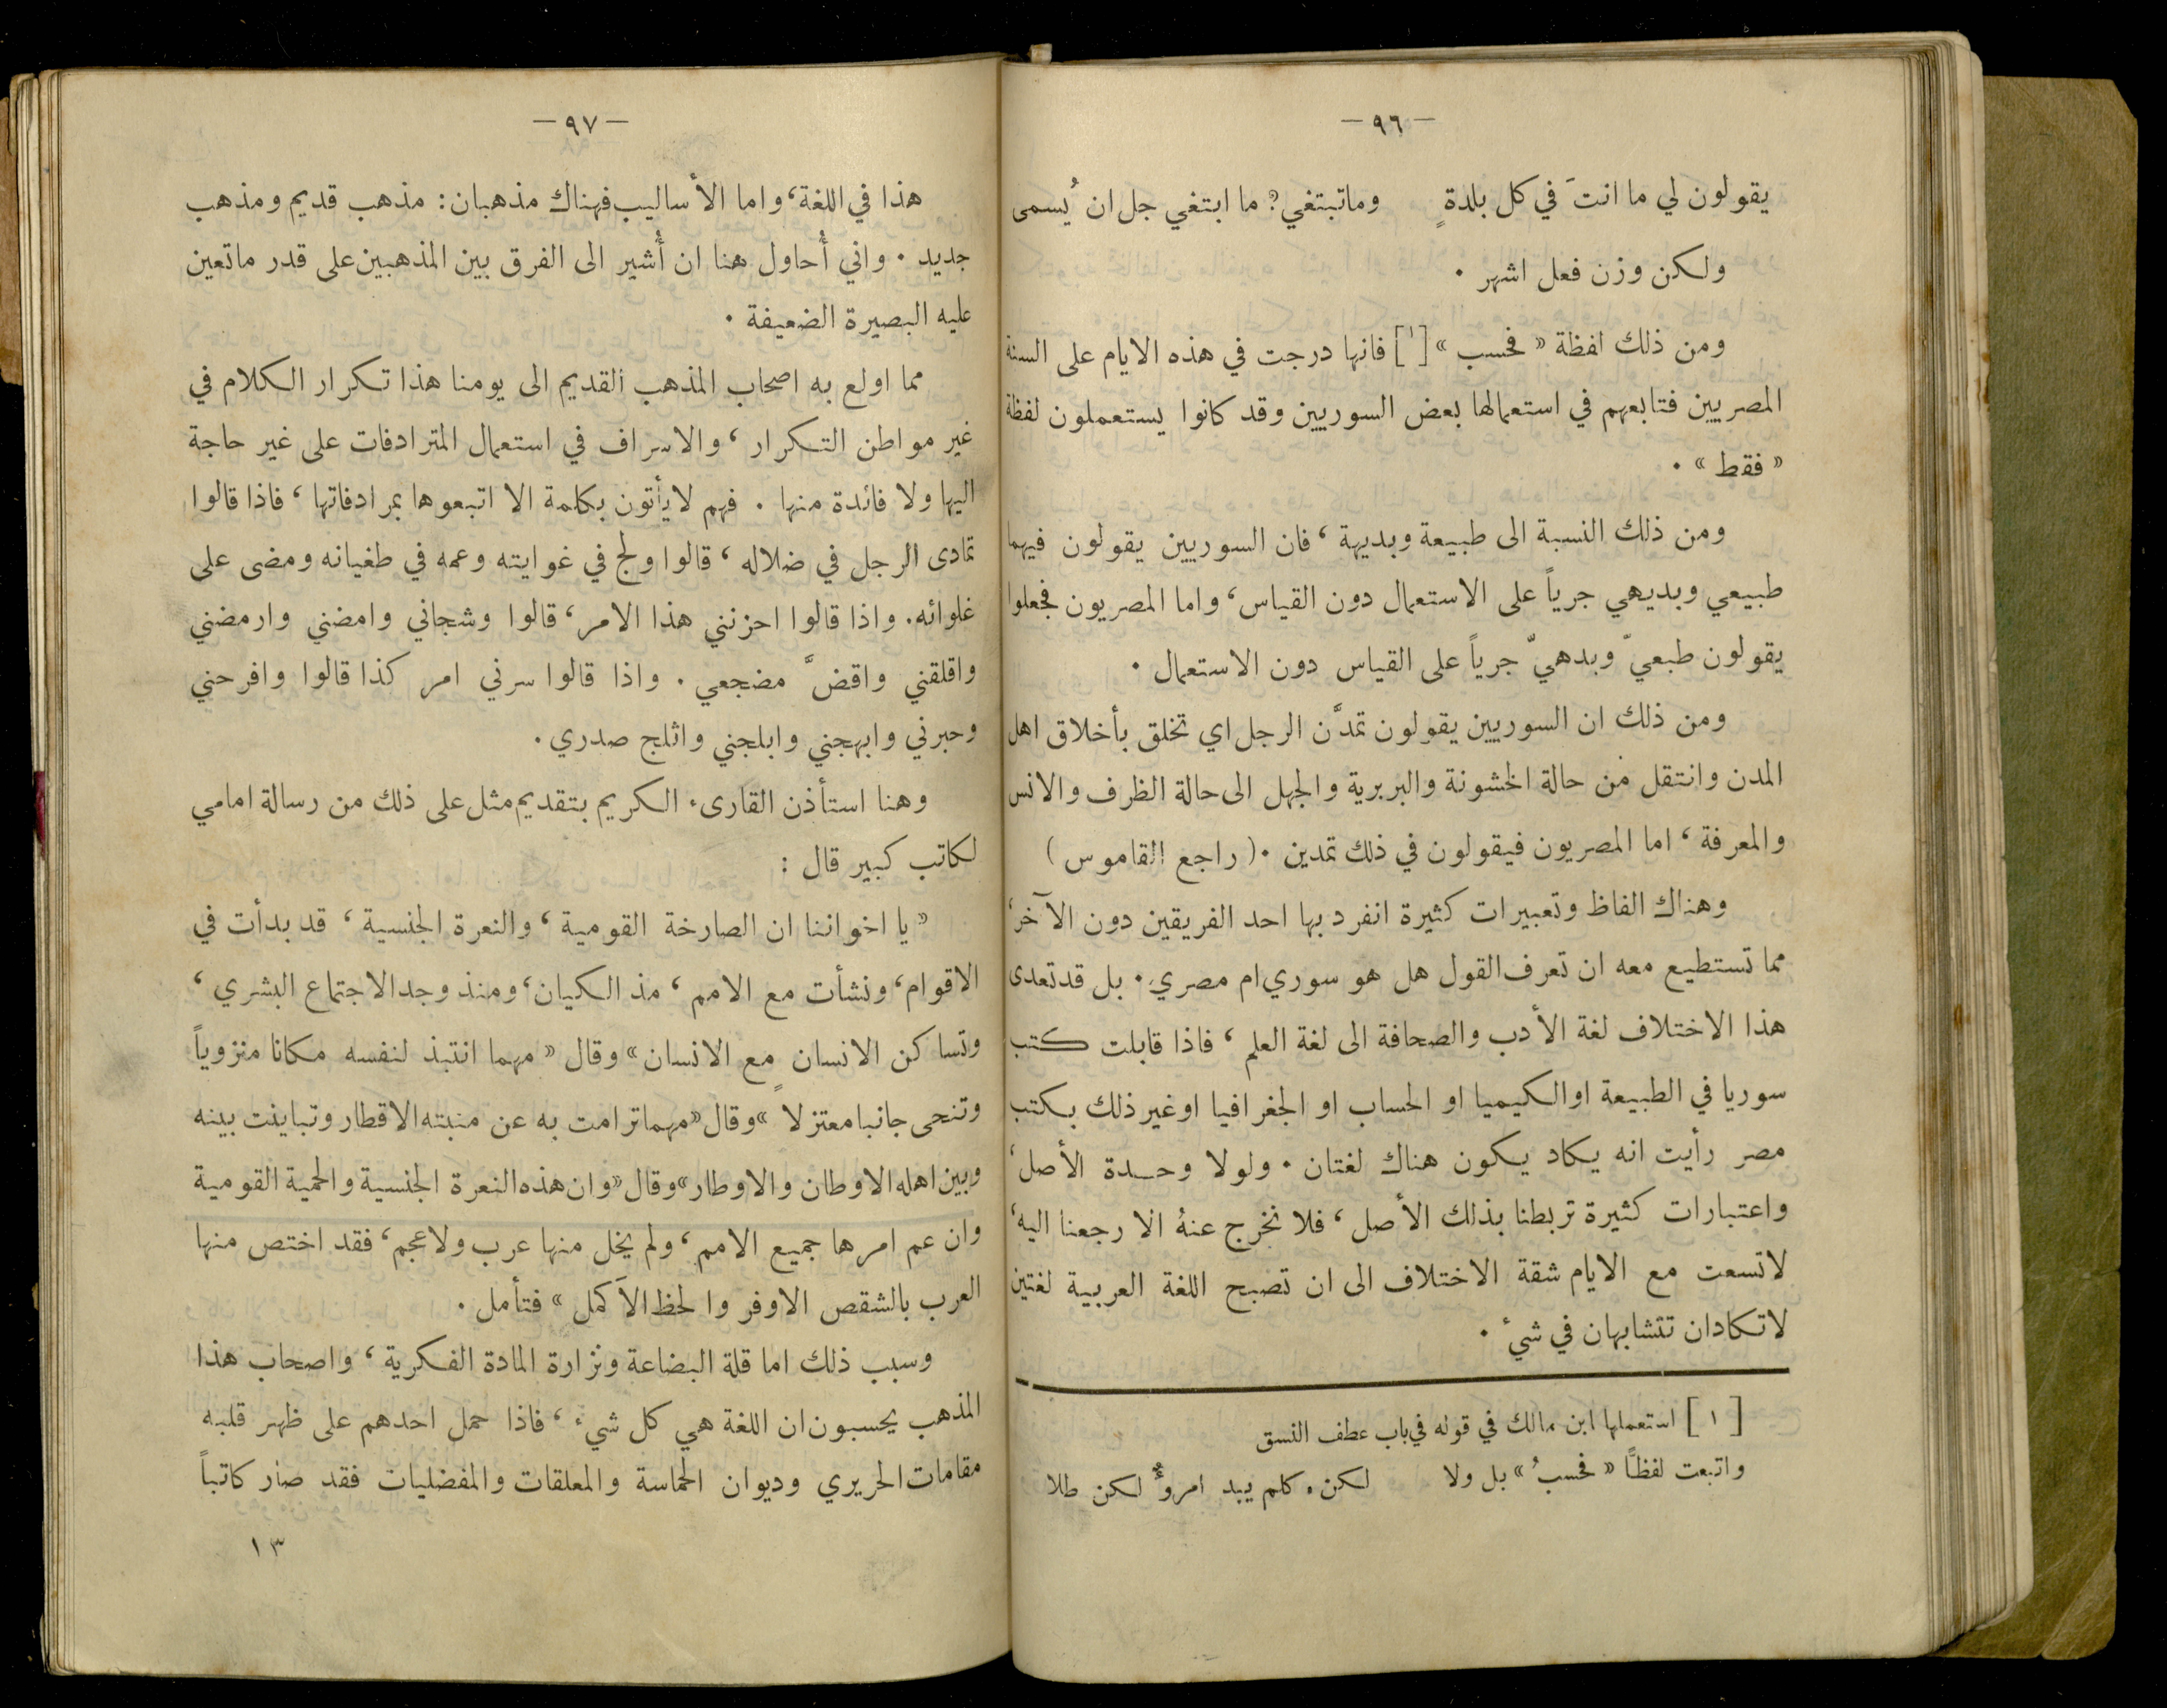 — ٩٦ —
يقولون لي ما انتَ في كل بلدةٍ وماتبتغي؟ ما ابتغي جل ان يُسمى
ولكن وزن فعل اشهر .
ومن ذلك لفظة « فحسب » [١] فانها درجت في هذه الايام على السنة
المصريين فتابعهم في استعمالها بعض السوريين وقد كانوا يستعملون لفظة
« فقط » .
ومن ذلك النسبة الى طبيعة وبديهة ، فان السوريين يقولون فيهما
طبيعي وبديهي جرياً على الاستعمال دون القياس ، واما المصريون فجعلوا
يقولون طبعيّ وبدهيّ جرياً على القياس دون الاستعمال .
ومن ذلك ان السوريين يقولون تمدَّن الرجل اي تخلق بأخلاق اهل
المدن وانتقل من حالة الخشونة والبربرية والجهل الى حالة الظرف والانس
والمعرفة ، اما المصريون فيقولون في ذلك تمدين . ( راجع القاموس )
وهناك الفاظ وتعبيرات كثيرة انفرد بها احد الفريقين دون الآخر ،
مما تستطيع معه ان تعرف القول هل هو سوري ام مصري . بل قد تعدى
هذا الاختلاف لغة الأدب والصحافة الى لغة العلم ، فاذا قابلت كتب
سوريا في الطبيعة او الكيميا او الحساب او الجغرافيا او غير ذلك بكتب
مصر رأيت انه يكاد يكون هناك لغتان . ولولا وحدة الأصل ،
واعتبارات كثيرة تربطنا بذلك الأصل ، فلا نخرج عنهُ الا رجعنا اليه ،
لاتسعت مع الايام شقة الاختلاف الى ان تصبح اللغة العربية لغتين
لاتكادان تتشابهان في شيءٔ .
[ ١ ] استعملها ابن مالك في قوله في باب عطف النسق
واتبعت لفظًا « فحسبُ » بل ولا لكن . كلم يبد امروءٌ لكن طلا
— ٩٧ —
هذا في اللغة ، واما الأساليب فهناك مذهبان : مذهب قديم ومذهب
جديد . واني أُحاول هنا ان أُشير الى الفرق بين المذهبين على قدر ماتعين
عليه البصيرة الضعيفة .
مما اولع به اصحاب المذهب القديم الى يومنا هذا تكرار الكلام في
غير مواطن التكرار ، والاسراف في استعمال المترادفات على غير حاجة
اليها ولا فائدة منها . فهم لايأتون بكلمة الا اتبعوها بمرادفاتها ، فاذا قالوا
تمادى الرجل في ضلاله ، قالوا ولج في غوايته وعمه في طغيانه ومضى على
غلوائه . واذا قالوا احزنني هذا الامر ، قالوا وشجاني وامضني وارمضني
واقلقني واقضَّ مضجعي . واذا قالوا سرني امر كذا قالوا وافرحني
وحبرني وابهجني وابلجني واثلج صدري .
وهنا استأذن القارىء الكريم بتقديم مثل على ذلك من رسالة امامي
لكاتب كبير قال :
« يا اخواننا ان الصارخة القومية ، والنعرة الجنسية ، قد بدأت في
الاقوام ، ونشأت مع الامم ، مذ الكيان ، ومنذ وجد الاجتماع البشري ،
وتساكن الانسان مع الانسان » وقال « مهما انتبذ لنفسه مكانا منزوياً
وتنحى جانبا معتزلاً » وقال « مهما ترامت به عن منبته الاقطار وتباينت بينه
وبين اهله الاوطان والاوطار » وقال « وان هذه النعرة الجنسية والحمية القومية
وان عم امرها جميع الامم ، ولم يخل منها عرب ولا عجم ، فقد اختص منها
العرب بالشقص الاوفر والحظ الأكمل » فتأمل .
وسبب ذلك اما قلة البضاعة ونزارة المادة الفكرية ، واصحاب هذا
المذهب يحسبون ان اللغة هي كل شيء ، فاذا حمل احدهم على ظهر قلبه
مقامات الحريري وديوان الحماسة والمعلقات والمفضليات فقد صار كاتباً
١٣